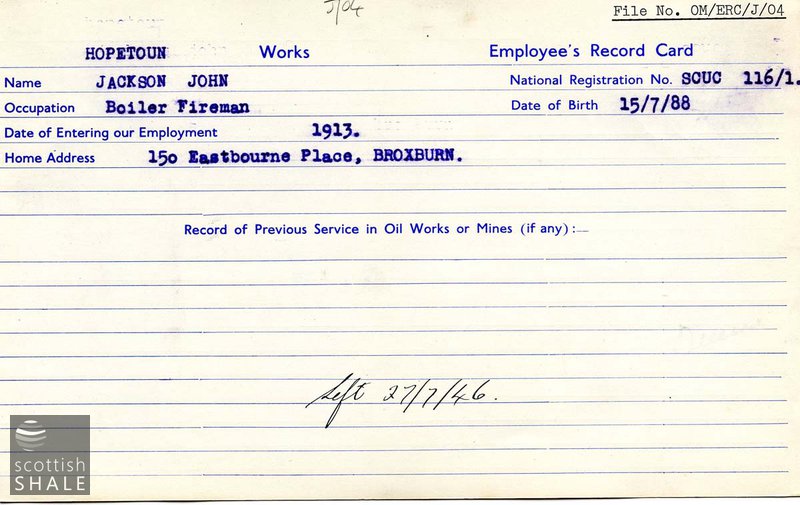 J/04
File No. OM/ERC/J/04
HOPETOUN Works Employee's Record Card
Name JACKSON JOHN National Registration No. SCUC 116/1.
Occupation Boiler Fireman Date of Birth 15/7/88
Date of Entering our Employment 1913.
Home Address 150 Eastbourne Place, BROXBURN.
Record of Previous Service in Oil Works or Mines (if any):—
Left 27/7/46.
scottish
SHALE